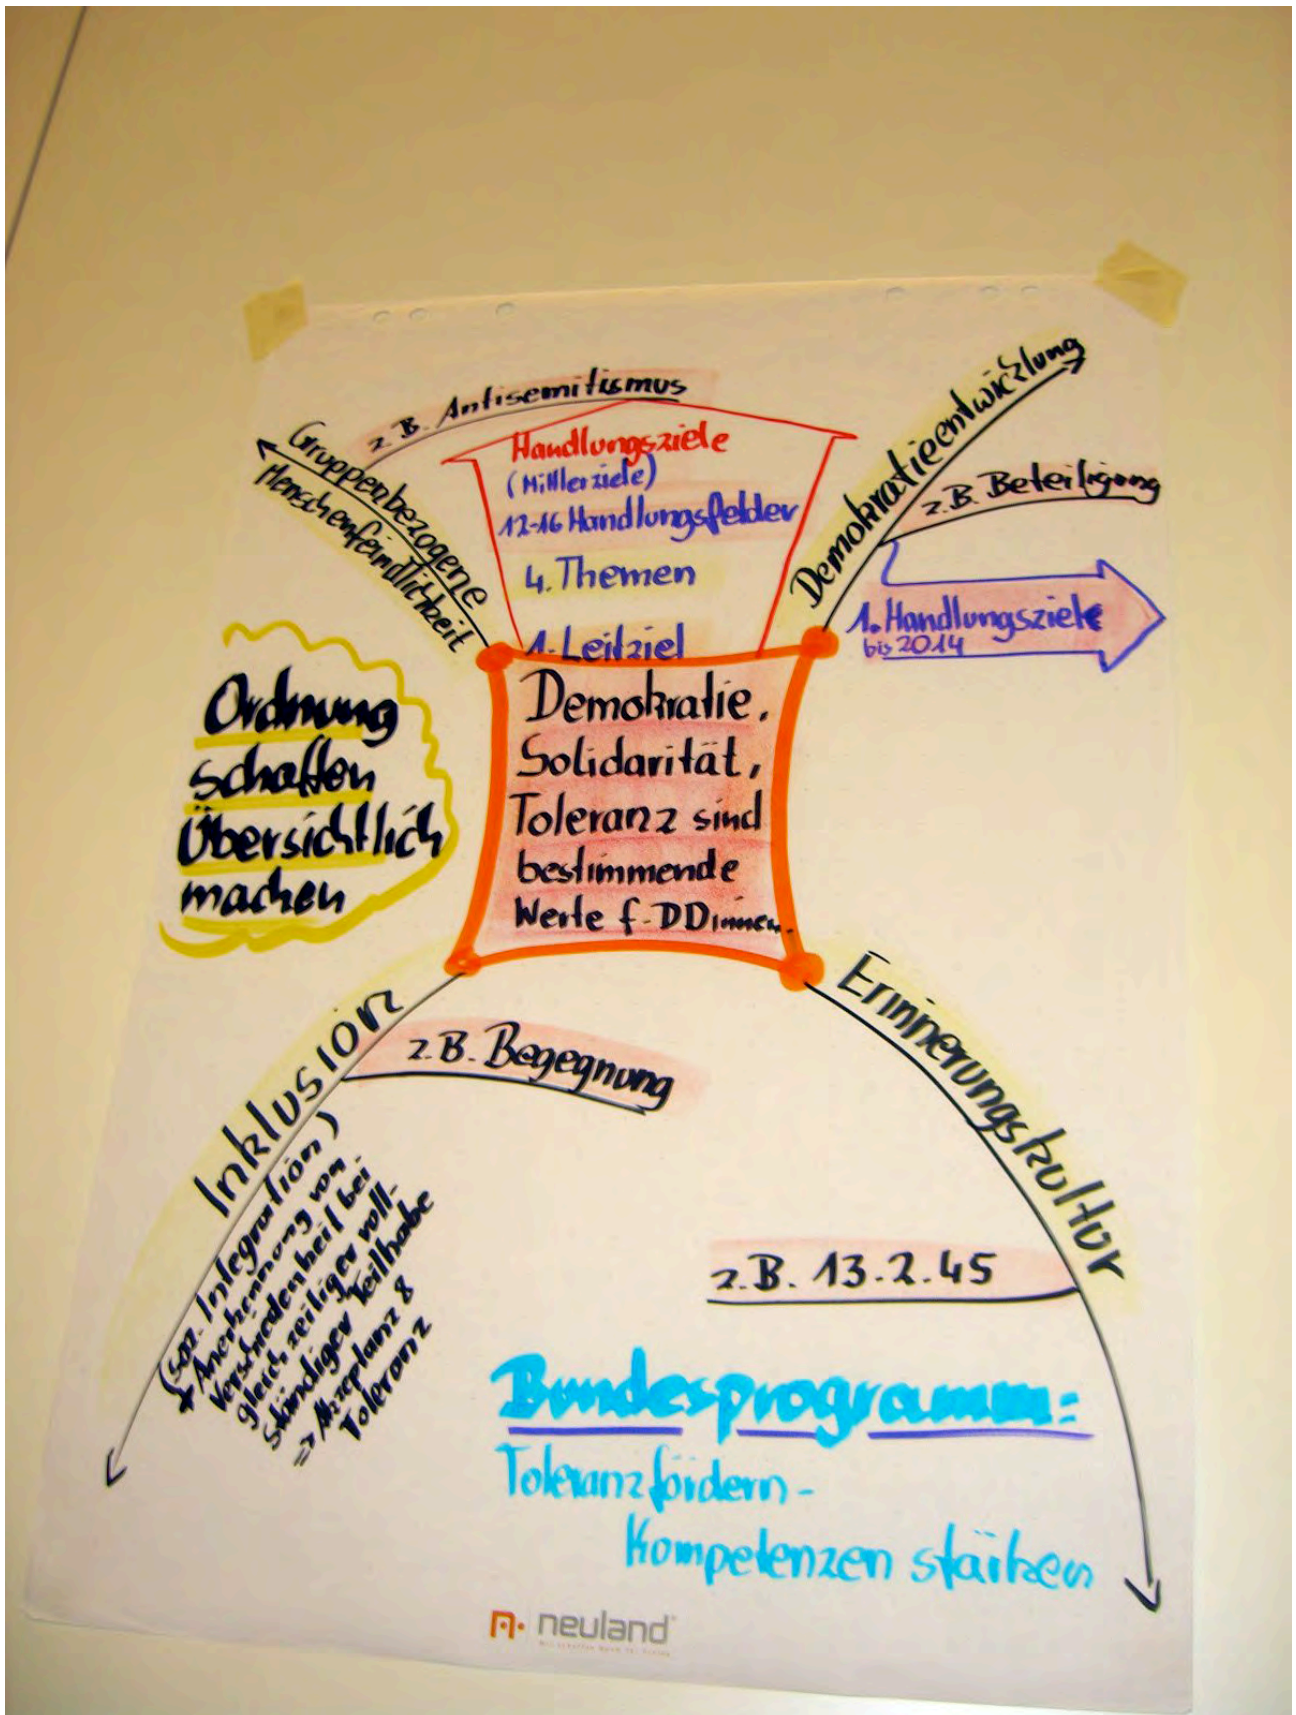 z.B. Antisemitismus
Gruppenbezogene
Menschenfeindlichkeit
Handlungsziele
(Mittlerziele)
12-16 Handlungsfelder
4. Themen
1. Leitziel
Demokratieentwicklung
z.B. Beteiligung
1. Handlungsziele
bis 2014
Ordnung
schaffen
Übersichtlich
machen
Demokratie,
Solidarität,
Toleranz sind
bestimmende
Werte f. DDinnen.
Inklusion
z.B. Begegnung
(soz. Integration)
Anerkennung von
Verschiedenheit bei
gleichzeitiger voll-
ständiger Teilhabe
=> Akzeptanz &
Toleranz
Erinnerungskultur
z.B. 13.2.45
Bundesprogramm:
Toleranz fördern -
Kompetenzen stärken
neuland